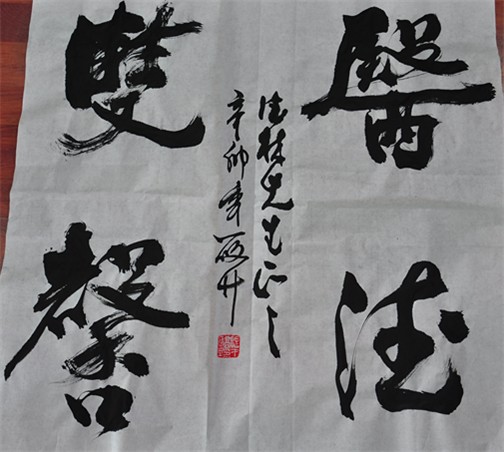 醫德
雙馨
德林先生正之
辛卯年